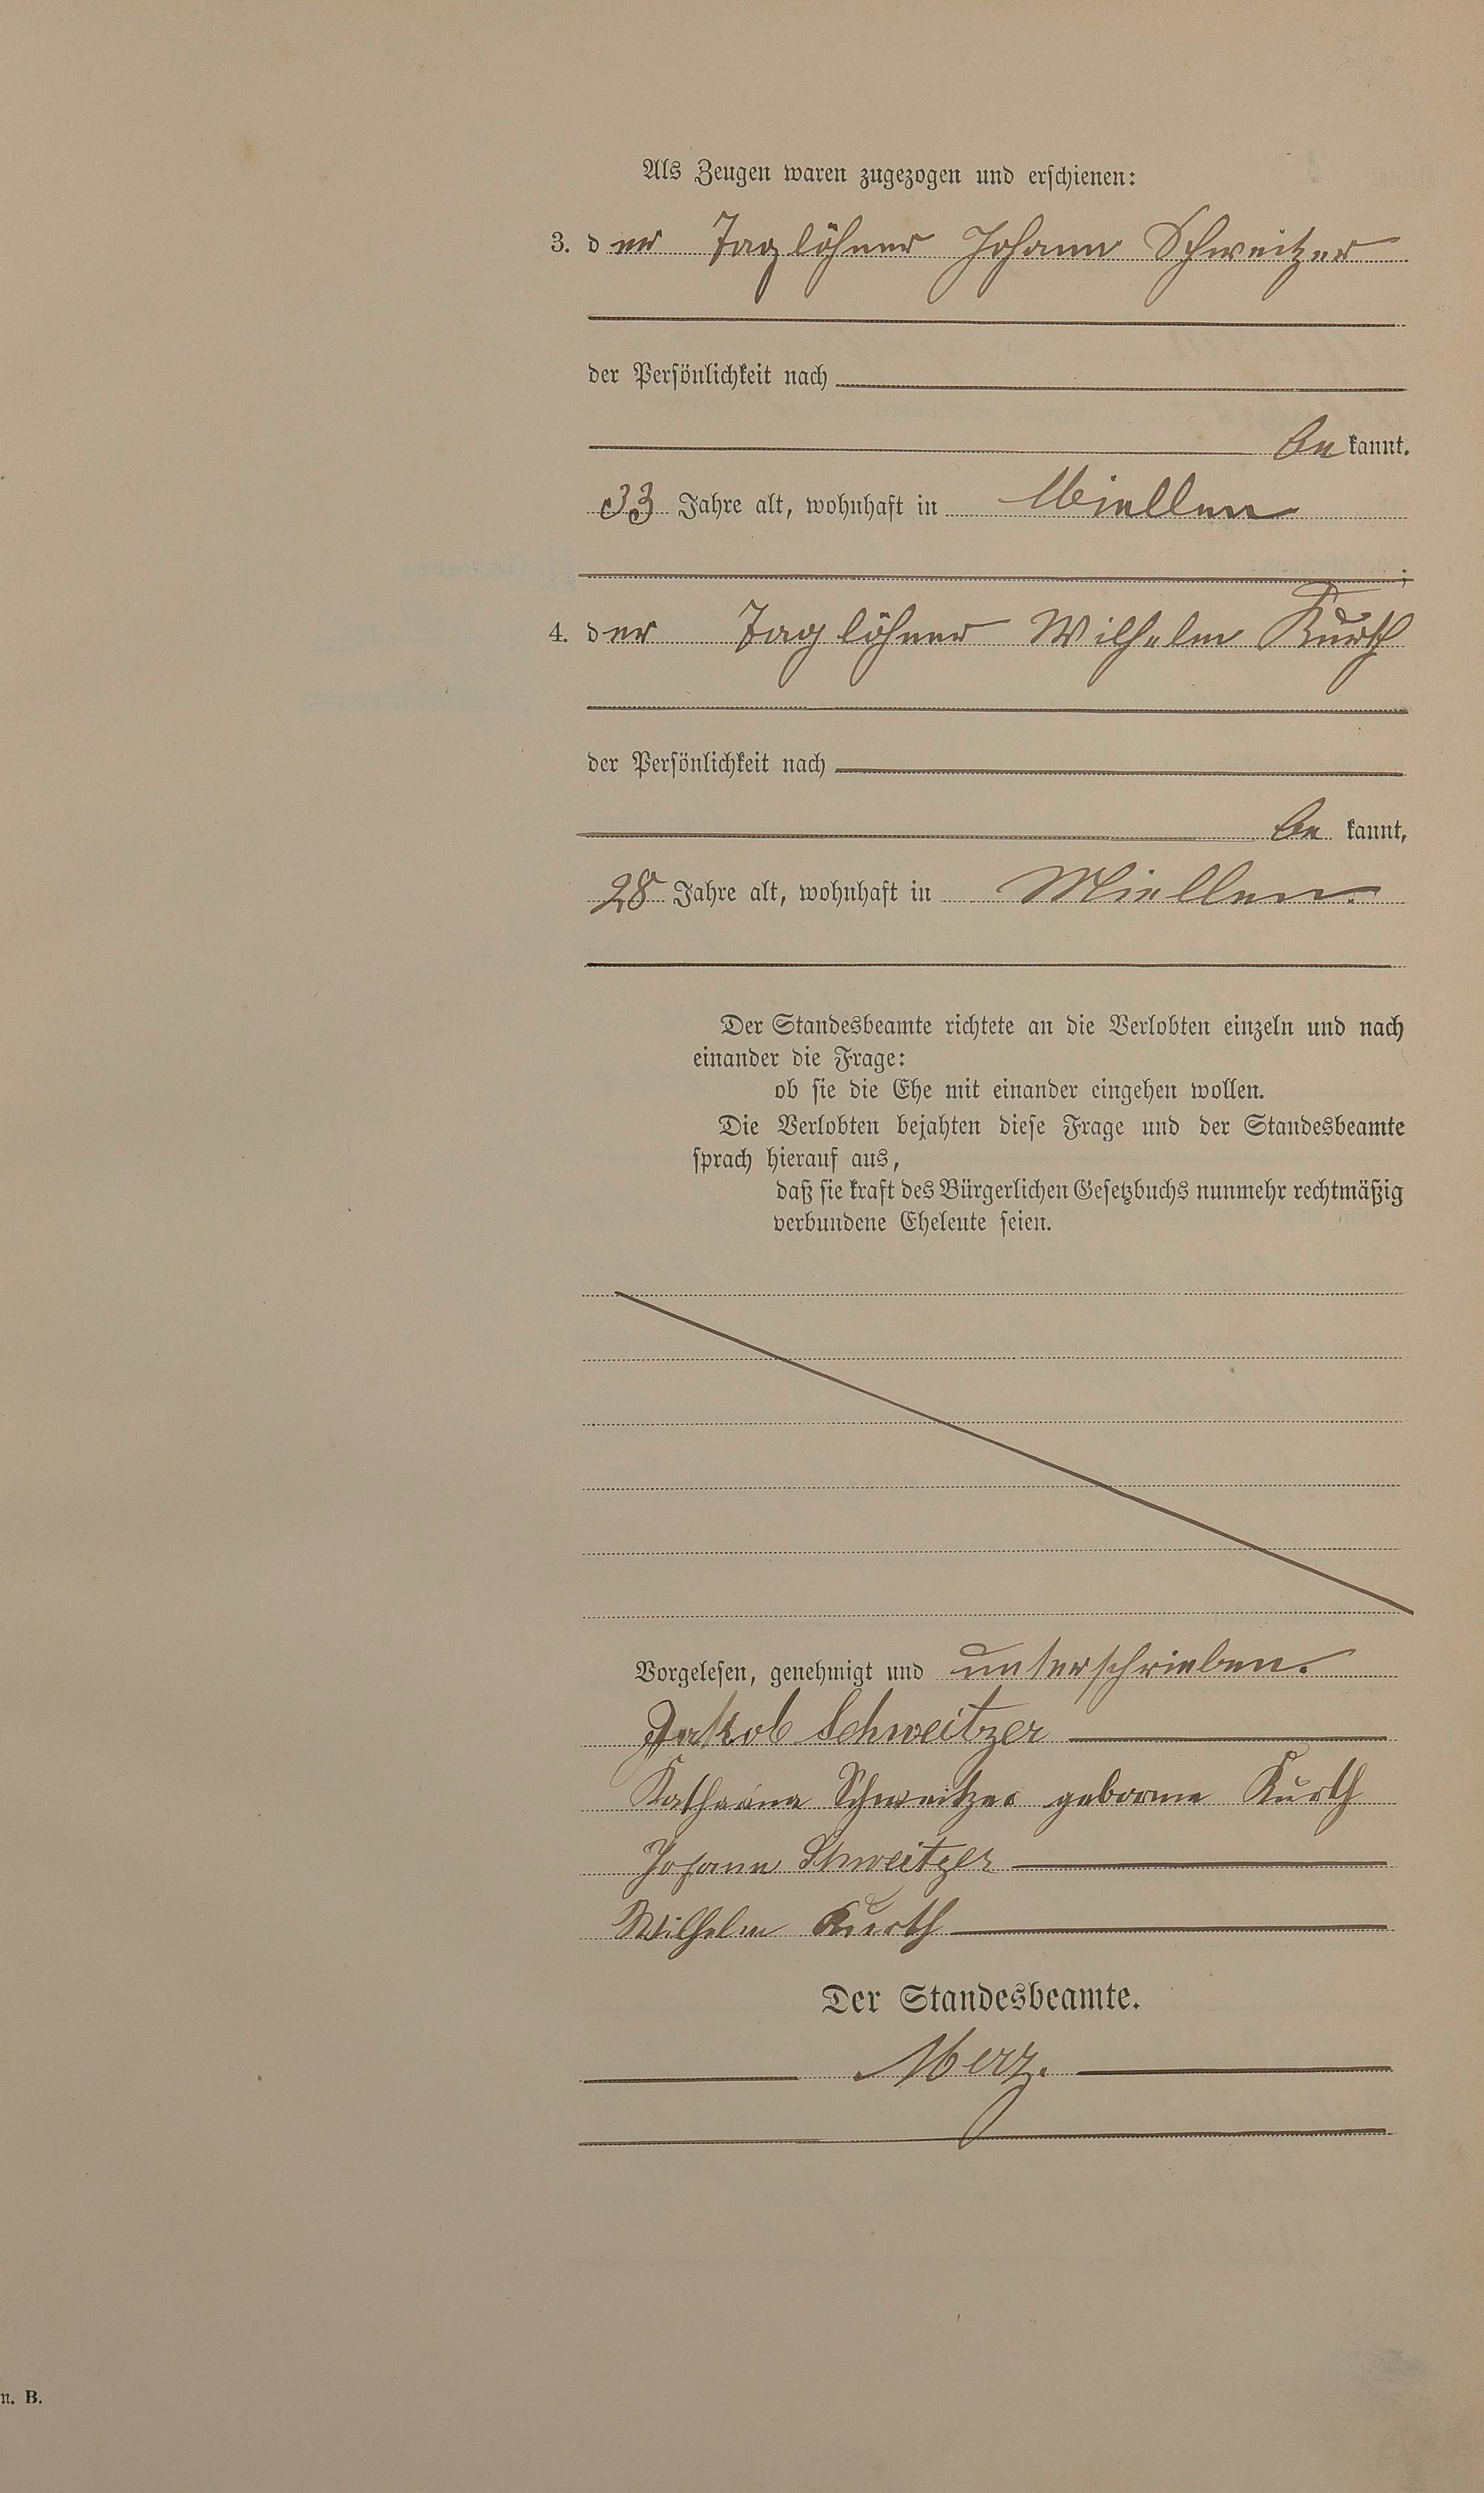 Als Zeugen waren zugezogen und erschienen:
3. der Taglöhner Johann Schweitzer
der Persönlichkeit nach
be kannt.
33 Jahre alt, wohnhaft in Miellen
;
4. der Taglöhner Wilhelm Kurth
der Persönlichkeit nach
be kannt,
28 Jahre alt, wohnhaft in Miellen.
Der Standesbeamte richtete an die Verlobten einzeln und nach
einander die Frage:
ob sie die Ehe mit einander eingehen wollen.
Die Verlobten bejahten diese Frage und der Standesbeamte
sprach hierauf aus,
daß sie kraft des Bürgerlichen Gesetzbuchs nunmehr rechtmäßig
verbundene Eheleute seien.
Vorgelesen, genehmigt und unterschrieben.
Jakob Schweitzer
Katharina Schweitzer geborne Kurth
Johann Schweitzer
Wilhelm Kurth
Der Standesbeamte.
Merz.
n. B.